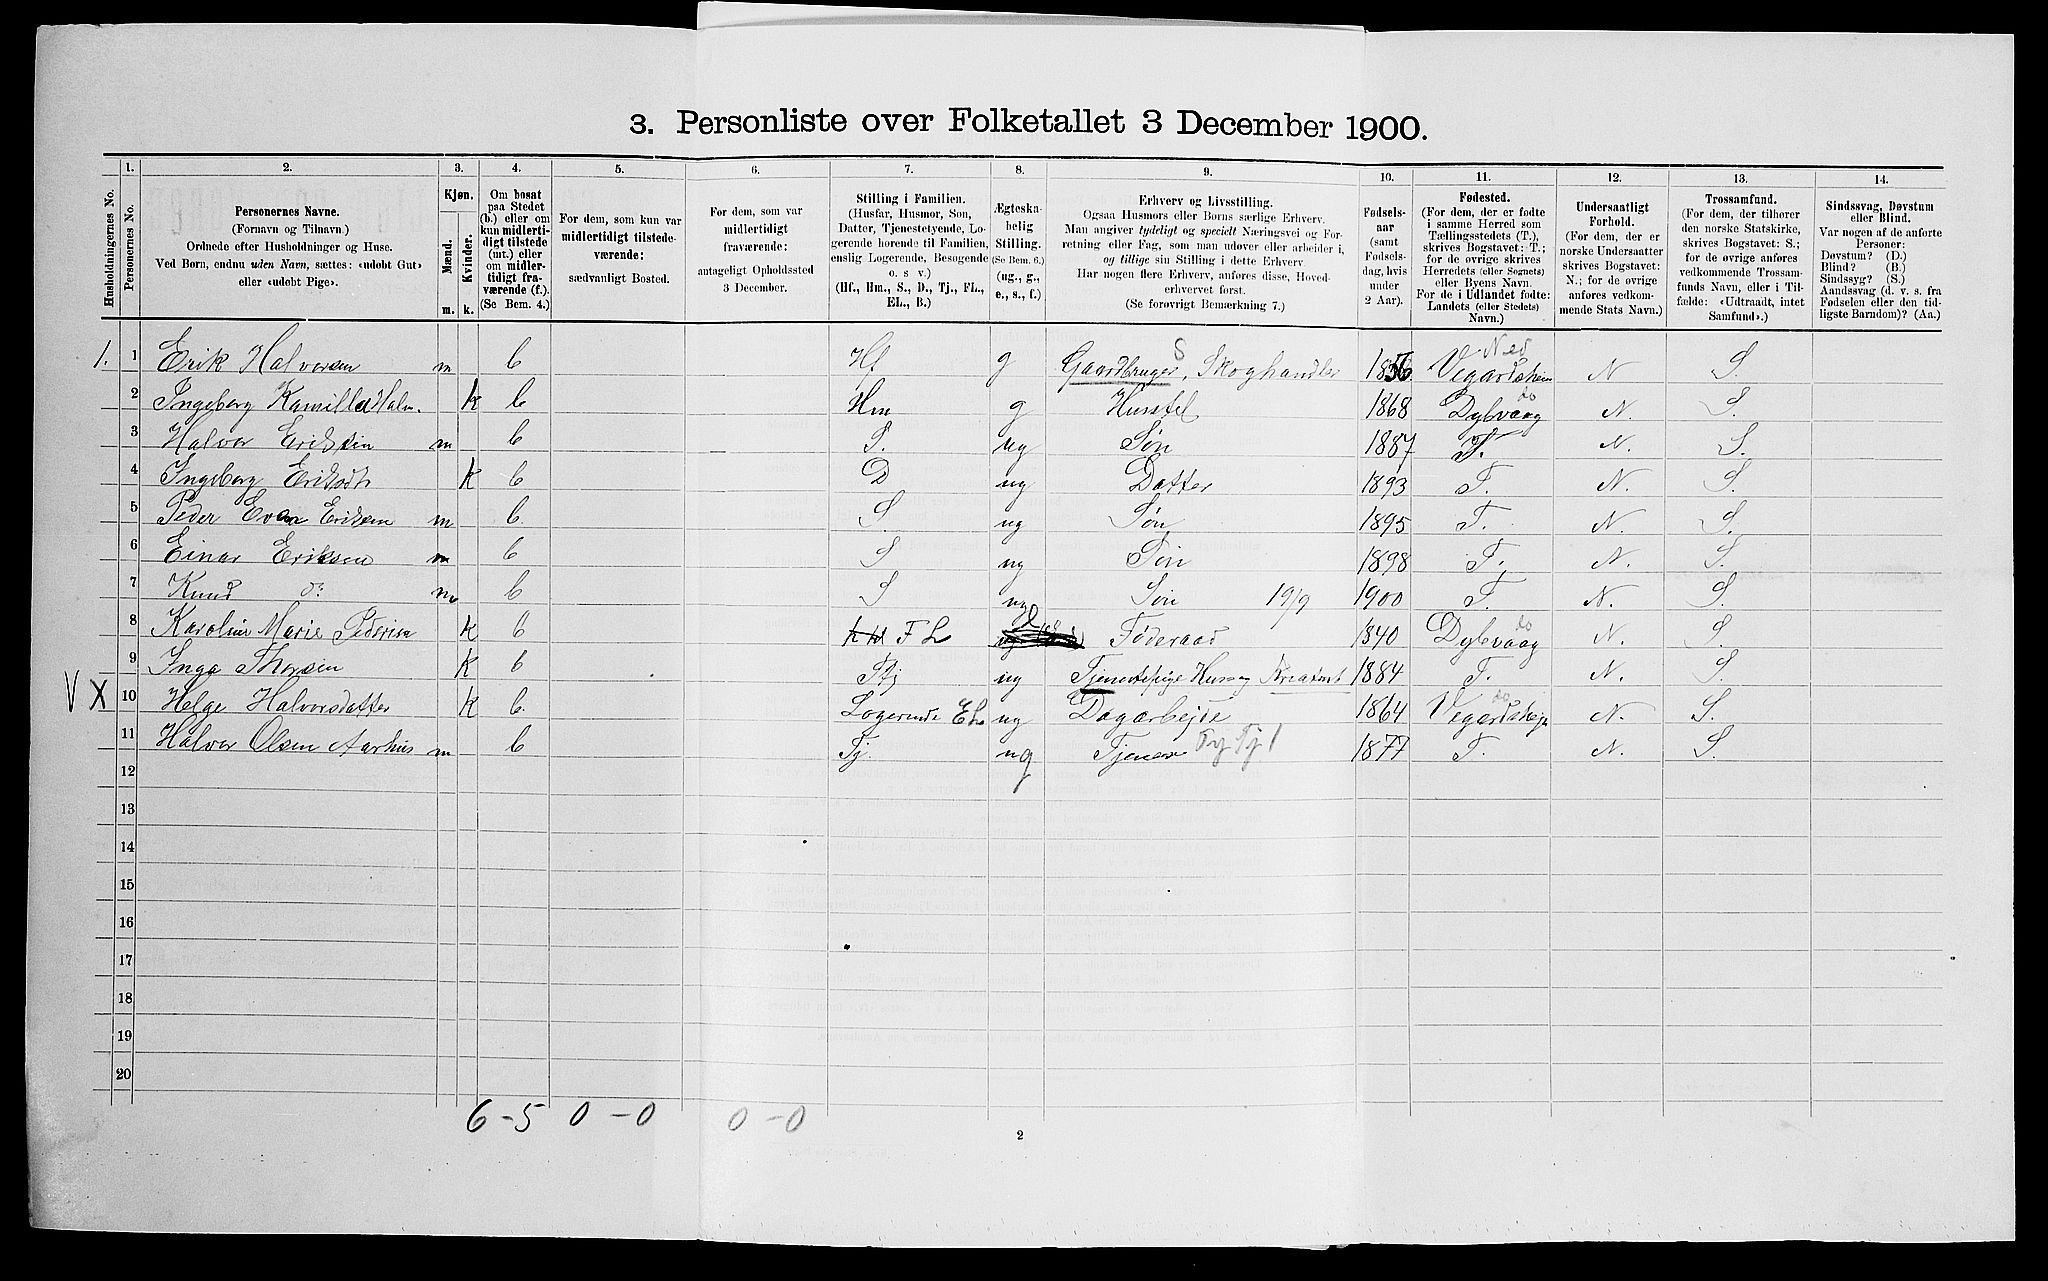 3. Personliste over Folketallet 3 December 1900.
Husholdningernes No.
1.
Personernes No.
2.
Personernes Navne.
(Fornavn og Tilnavn.)
Ordnede efter Husholdninger og Huse.
Ved Børn, endnu uden Navn, sættes: «udøbt Gut»
eller «udøbt Pige».
3.
Kjøn.
Mænd.
Kvinder.
m. k.
4.
Om bosat
paa Stedet
(b.) eller om
kun midlerti-
digt tilstede
(mt.) eller
om midler-
tidigt fra-
værende (f.).
(Se Bem. 4.)
5.
For dem, som kun var
midlertidigt tilstede-
værende:
sædvanligt Bosted.
6.
For dem, som var
midlertidigt
fraværende:
antageligt Opholdssted
3 December.
7.
Stilling i Familien.
(Husfar, Husmor, Søn,
Datter, Tjenestetyende, Lo-
gerende hørende til Familien,
enslig Logerende, Besøgende
o. s. v.)
(Hf., Hm., S., D., Tj., FL.,
EL., B.)
8.
Ægteska-
belig
Stilling.
(Se Bem. 6.)
(ug., g.,
e., s., f.)
9.
Erhverv og Livsstilling.
Ogsaa Husmors eller Børns særlige Erhverv.
Man angiver tydeligt og specielt Næringsvei og For-
retning eller Fag, som man udøver eller arbeider i,
og tillige sin Stilling i dette Erhverv.
Har nogen flere Erhverv, anføres disse, Hoved-
erhvervet først.
(Se forøvrigt Bemærkning 7.)
10.
Fødsels-
aar
(samt
Fødsels-
dag, hvis
under
2 Aar).
11.
Fødested.
(For dem, der er fødte
i samme Herred som
Tællingsstedets (T.),
skrives Bogstavet: T.;
for de øvrige skrives
Herredets (eller Sognets)
eller Byens Navn.
For de i Udlandet fødte:
Landets (eller Stedets)
Navn.)
12.
Undersaatligt
Forhold.
(For dem, der er
norske Undersaatter
skrives Bogstavet:
N.; for de øvrige
anføres vedkom-
mende Stats Navn.)
13.
Trossamfund.
(For dem, der tilhører
den norske Statskirke,
skrives Bogstavet: S.;
for de øvrige anføres
vedkommende Trossam-
funds Navn, eller i Til-
fælde: «Udtraadt, intet
Samfund».)
14.
Sindssvag, Døvstum
eller Blind.
Var nogen af de anførte
Personer:
Døvstum? (D.)
Blind? (B.)
Sindssyg? (S.)
Aandssvag (d. v. s. fra
Fødselen eller den tid-
ligste Barndom)? (Aa.)
1. 1 Erik Halvorsen m b Hf g Gaardbruger, S Skoghandler 1856 Vegardsheien Ned N S.
2 Ingeborg Kamilla Halv. k b Hm g Husstel 1868 Dybvaag do N. S.
3 Halvor Eriksen m b S. ug Søn 1887 T. N. S.
4 Ingeborg Eriksdtr k b D ug Datter 1893 T. N. S.
5 Peder Even Eriksen m b S. ug Søn 1895 T. N. S.
6 Einar Eriksen m b S ug Søn 1898 T. N. S.
7 Knud do m b S ug Søn 19/9 1900 T. N. S
8 Karoline Marie Pedersen k b FL Føderaad 1840 Dybvaag do N. S.
9 Inga Thorsen k b Tj ug Tjenestepige Husog Kreaturst 1884 T. N. S.
V X 10 Helge Halvorsdatter k b Logerende EL ug Dagarbejde 1864 Vegardsheien do N. S.
11 Halvor Olsen Aarhus m b Tj. ug Tjener 1877 T. N. S.
12
13
14
15
16
17
18
19
20
6 – 5 0 – 0 0 – 0
2